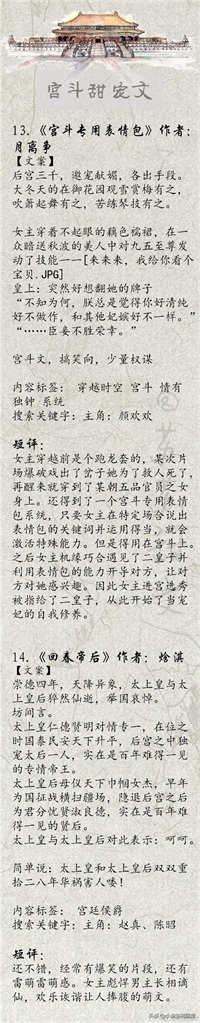 宫斗甜宠文
13.《宫斗专用表情包》作者：
月离争
【文案】
后宫三千，邀宠献媚，各出手段。
大冬天的在御花园观雪赏梅有之，
吹萧起舞有之，苦练琴技有之。
女主穿着不起眼的藕色襦裙，在一
众暗送秋波的美人中对九五至尊发
动了技能一一[来来来，我给你看个
宝贝.JPG]
皇上：突然好想翻她的牌子
“不知为何，朕总是觉得你好清纯
好不做作，和其他妃嫔好不一样。”
“……臣妾不胜荣幸。”
宫斗文，搞笑向，少量权谋
内容标签： 穿越时空 宫斗 情有
独钟 系统
搜索关键字：主角：颜欢欢
短评：
女主穿越前是个跑龙套的，某次片
场爆破戏出了岔子她为了救人死了，
再醒来就穿到了某朝五品官员之女
身上。还得到了一个宫斗专用表情
包系统，只要女主在特定场合说出
表情包的关键词并运用得当，就会
激活特殊能力。但是得用在宫斗上。
之后女主机缘巧合遇见了二皇子并
利用表情包的能力开导对方，让对
方对她感兴趣。因此女主进宫选秀
被指给了二皇子，从此开始了当宠
妃的自我修养。
14.《回春帝后》作者：烩淇
【文案】
崇德四年，天降异象，太上皇与太
上皇后猝然仙逝，举国哀悼。
坊间言。
太上皇仁德贤明对情专一，在位之
时国泰民安天下升平，后宫之中独
宠太后一人，实在是百年难得一见
的专情帝王。
太上皇后母仪天下巾帼女杰，早年
为国征战横扫疆场，隐退后宫之后
为君分忧贤淑良德，实在是百年难
得一见的贤后。
太上皇与太上皇后对此表示：呵呵。
简单说：太上皇和太上皇后双双重
拾二八年华祸害人喽！
内容标签： 宫廷侯爵
搜索关键字：主角：赵真、陈昭
短评：
还不错，经常有爆笑的片段，还有
雷萌雷萌感。女主彪悍男主长相谪
仙，欢乐诙谐让人捧腹的萌文。